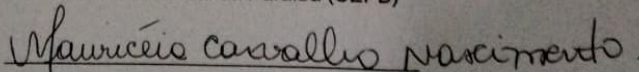 Mauricéia Carvalho Nascimento